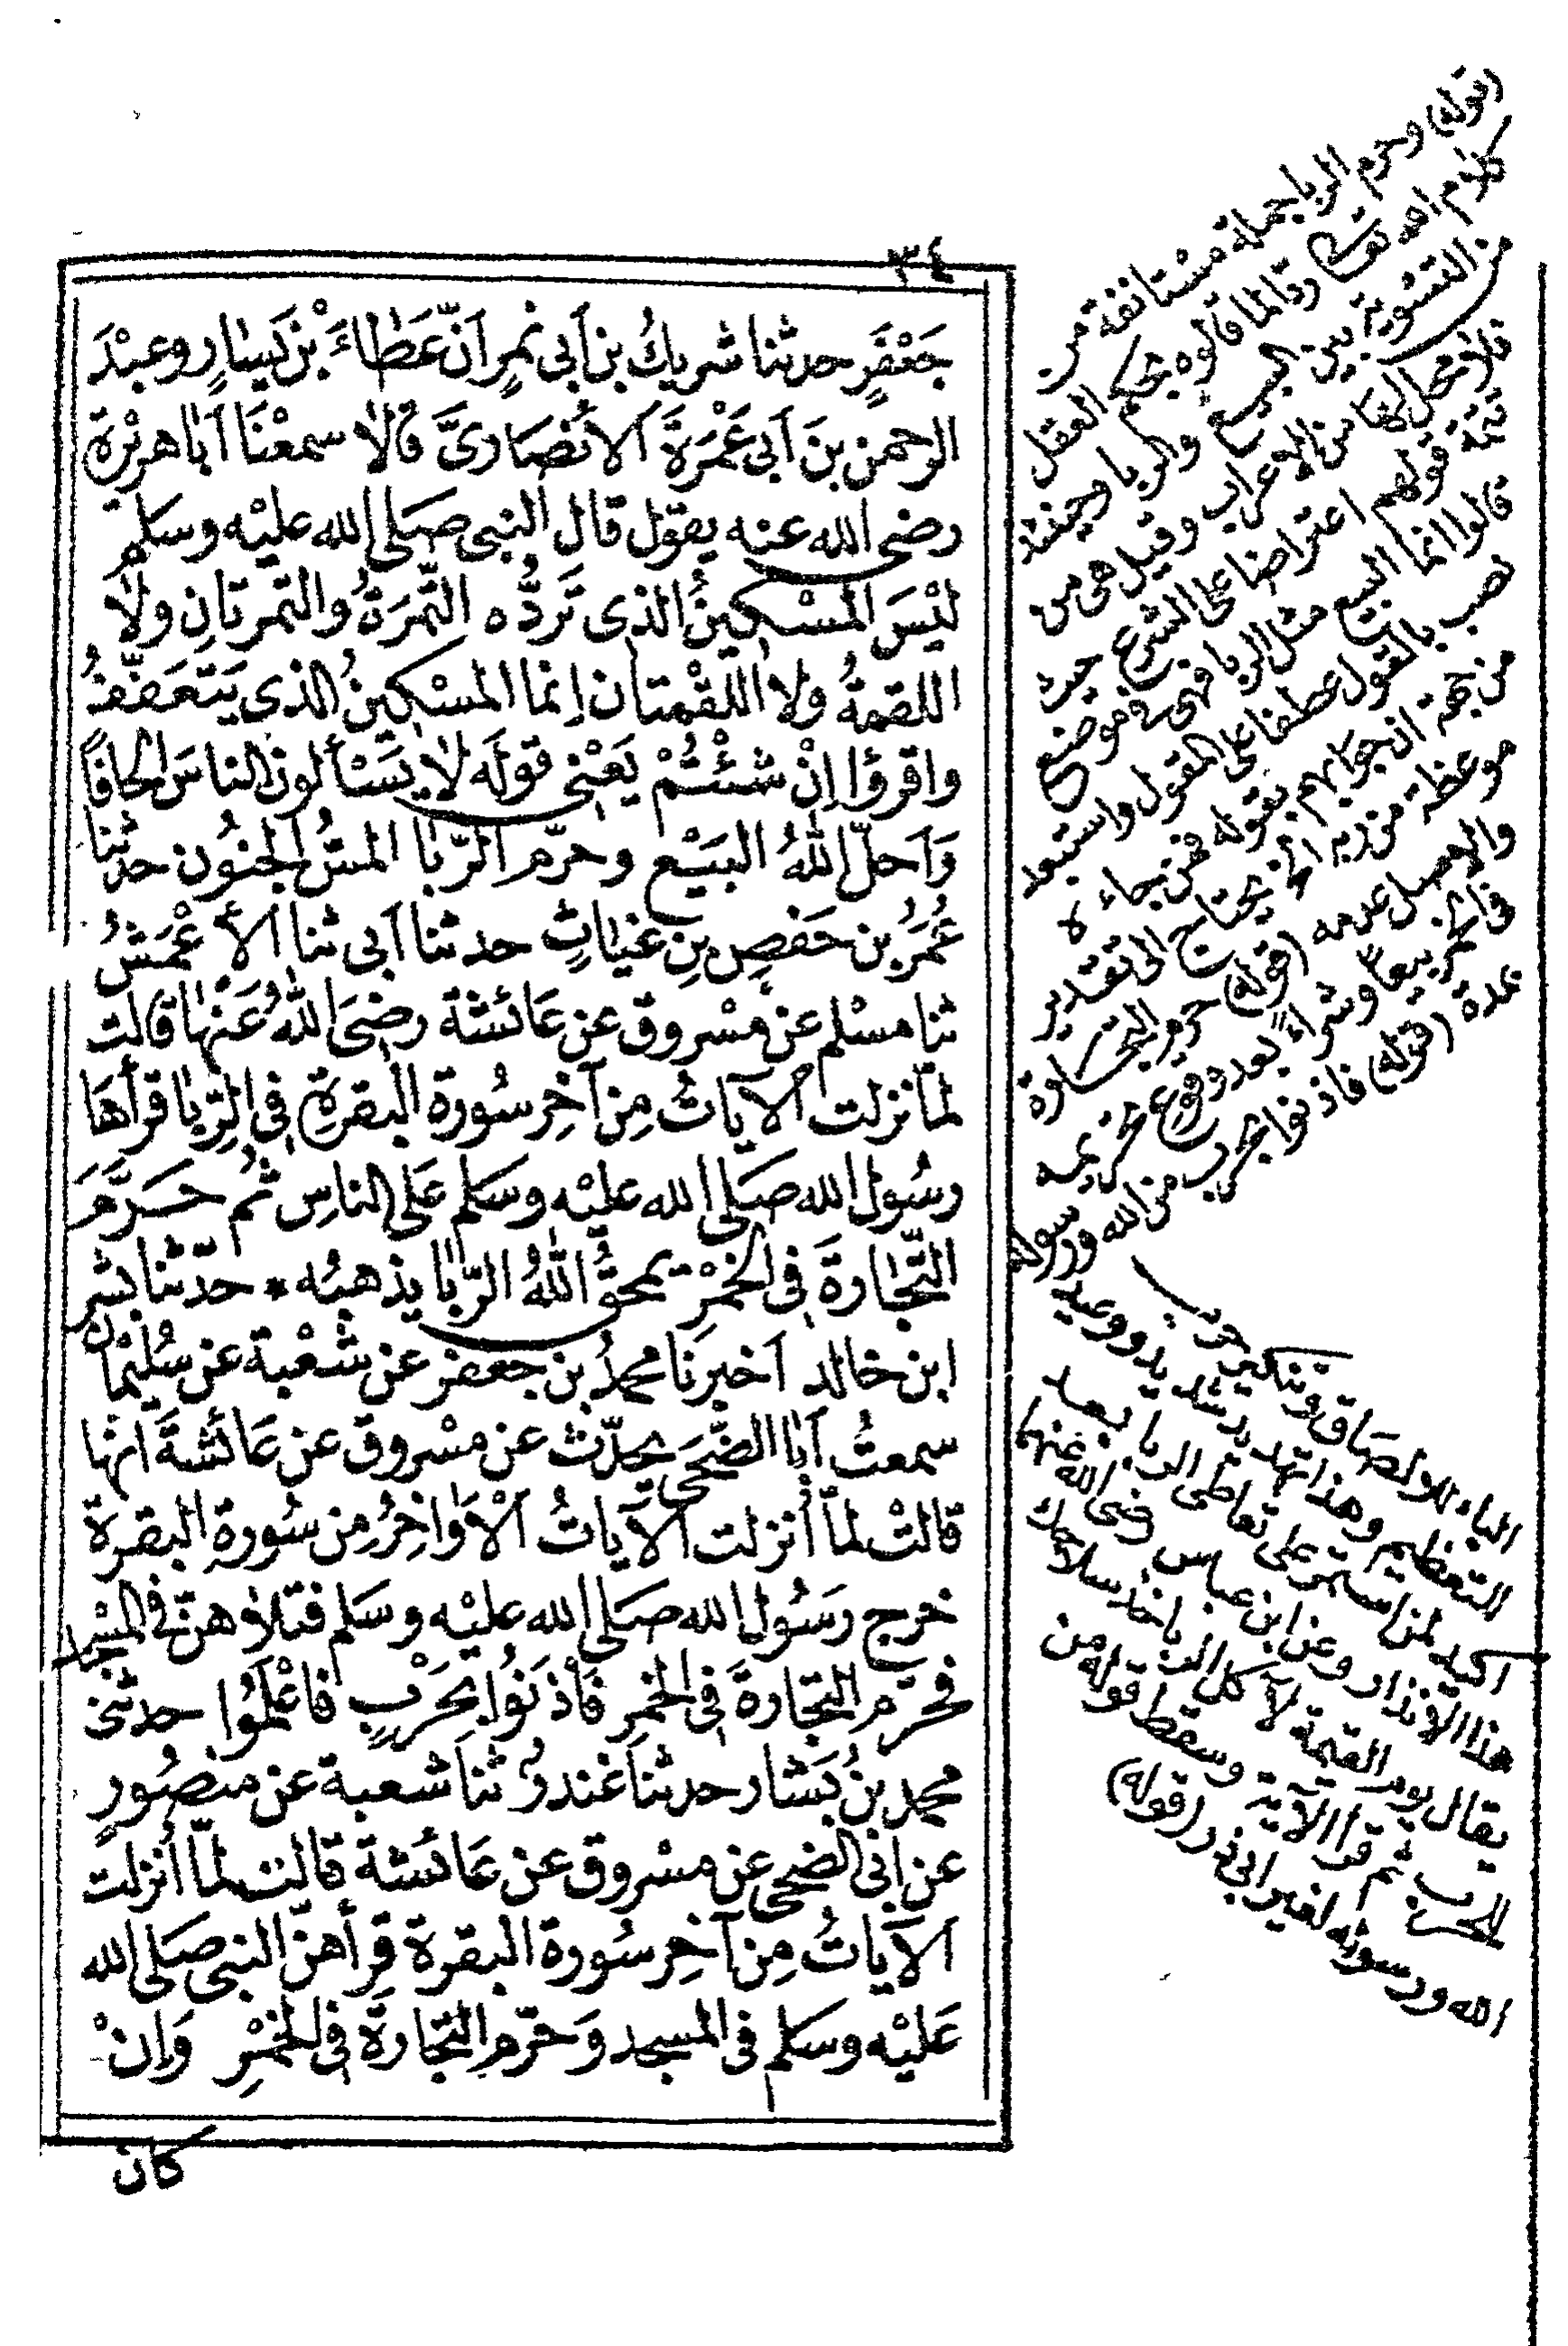 ٣٤
جَعْفَرٍ حدثنا شريكُ بن اَبى نمرٍ اَنّ عَطاءَ بْن يَسارٍ وعبْدَ
الرحمن بنَ اَبى عَمْرَةَ الانْصَارىَّ قالا سمعْنَا اَبا هريْرة
رضى الله عنه يقول قال النبى صَلى الله عليْه وسَلم
ليْسَ المسْكينُ الذى تَردُّه التّمرَةُ والتمرتانِ ولا
اللقمةُ ولا اللقْمتان اِنما المسْكينُ الذى يَتعَفّفُ
واقرؤا اِنْ شئْتُمْ يَعْنى قوله لا يَسْألون الناسَ الحافًا
وَاَحلّ اللهُ البيَعْ وحرّم الرّبا المسُّ الجنُون حدثنا
عُمَرُ بن حَفصِ بنِ غياثٍ حدثنا اَبى ثنا الأعْمَشُ
ثنا مسْلم عن مسْروق عن عَائشة رضىَ اللهُ عَنْها قالت
لمّا نزلت الآياتُ مِن آخِر سُورة البقرةِ فى الرّبا قرأهَا
رسُول الله صَلى الله عليْه وسَلم عَلى الناسِ ثُم حَرَّمَ
التّجارةَ فى الخمْرِ يمحقُ اللهُ الرّبا يذهبُه * حدّثنا بشر
ابن خالد اَخبرنَا محمدُ بن جعفر عن شعْبة عن سُليْمان
سمعتُ اَبا الضّحَى يحدّث عن مسْروق عن عَائشةَ انها
قالتْ لمّا أنزلت الآياتُ الْاَوَاخِرُ مِن سُورةِ البقرة
خرج رسَُول الله صَلى الله عليْه وسَلم فتلاهنّ فى المسْجد
فحرّم التجارةَ فى الخمر فَأذَنُوا بحَرْبٍ فاعْلَمُوا حدثنى
محمد بنُ بَشار حدثنَا غندرُ ثنَا شعبة عن منصُورٍ
عن ابى الضحى عن مسْروق عن عَائشة قالت لمّا أُنزلت
الآياتُ مِن آخِر سُورة البقرة قرأهنّ النبى صَلى الله
عَليْه وسَلم فى المسجد وَحرّم التجارَة فى الخمْرِ وَاِنْ
كان
(قوله) وحرم الربا جملة مستانفة من
كلام الله تعالى ردا لما قالوه بحكم العقل
من التسوية بين البيع والربا وحينئذ
فلا محل لها من الاعراب وقيل هى من
تتمة قولهم اعتراضا على الشرع حيث
قالوا انما البيع مثل الربا فهى فى موضع
نصب بالقول عطفا على المقول واستبعد
من جهة ان جوابهم بقوله فمن جاءه
موعظة من ربه الخ يحتاج الى تقدير
والاصل عدمه (قوله) حرم التجارة
فى الخمر بيعا وشراء بعد وقوع تحريمه
بمدة (قوله) فاذنوا بحرب من الله ورسوله
الباء للالصاق وتنكير حرب
للتعظيم وهذا تهديد شديد ووعيد
اكيد لمن استمر على تعاطى الربا بعد
هذا الانذار وعن ابن عباس رضى الله عنهما
يقال يوم القيمة لآكل الربا خذ سلاحك
للحرب ثم قرأ الآية وسقط قوله من
الله ورسوله لغير ابى ذر (قوله)